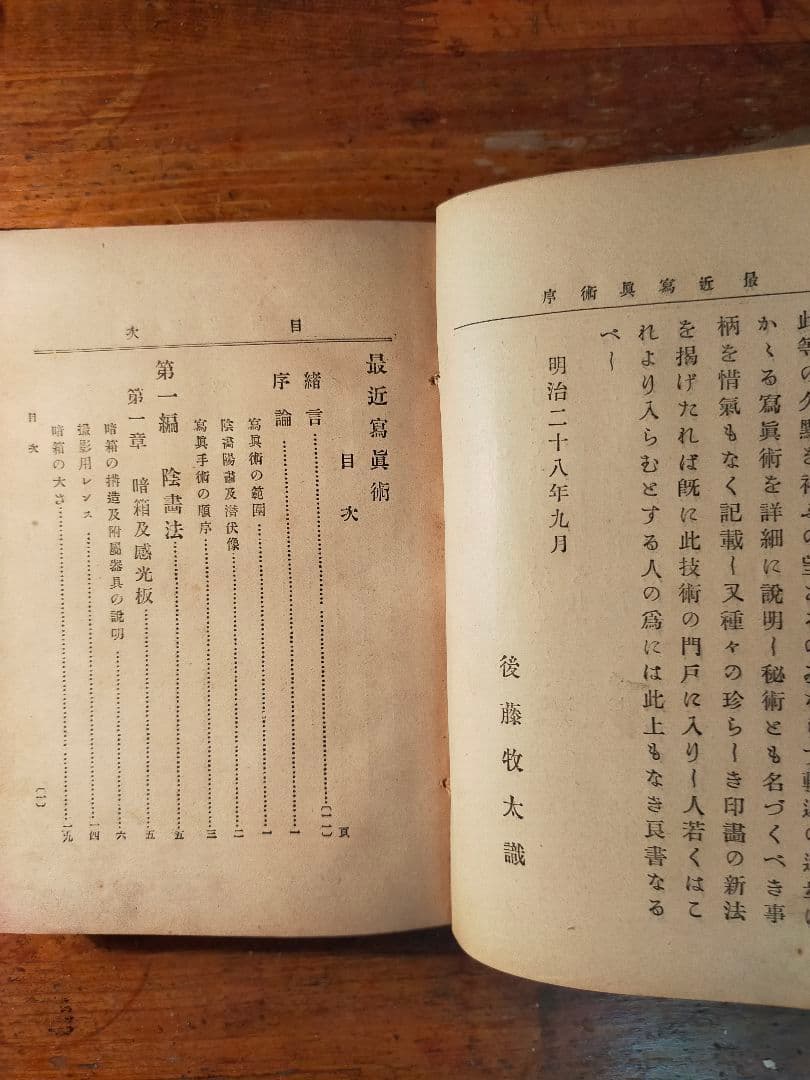 最近寫眞術序
かゝる寫眞術を詳細に說明し秘術とも名づくべき事
柄を惜氣もなく記載し又種々の珍らしき印畵の新法
を揭げたれば旣に此技術の門戶に入りし人若くはこ
れより入らむとする人の爲には此上もなき良書なる
べし
明治二十八年九月
後藤牧太識
目次
最近寫眞術
目次
頁
緖言……(一一)
序論……一
寫眞術の範圍……一
陰畵陽畵及潜伏像……二
寫眞手術の順序……三
第一編 陰畵法……五
第一章 暗箱及感光板……五
暗箱の搆造及附屬器具の說明……六
撮影用レンズ……一四
暗箱の大さ……一九
目次
(一)